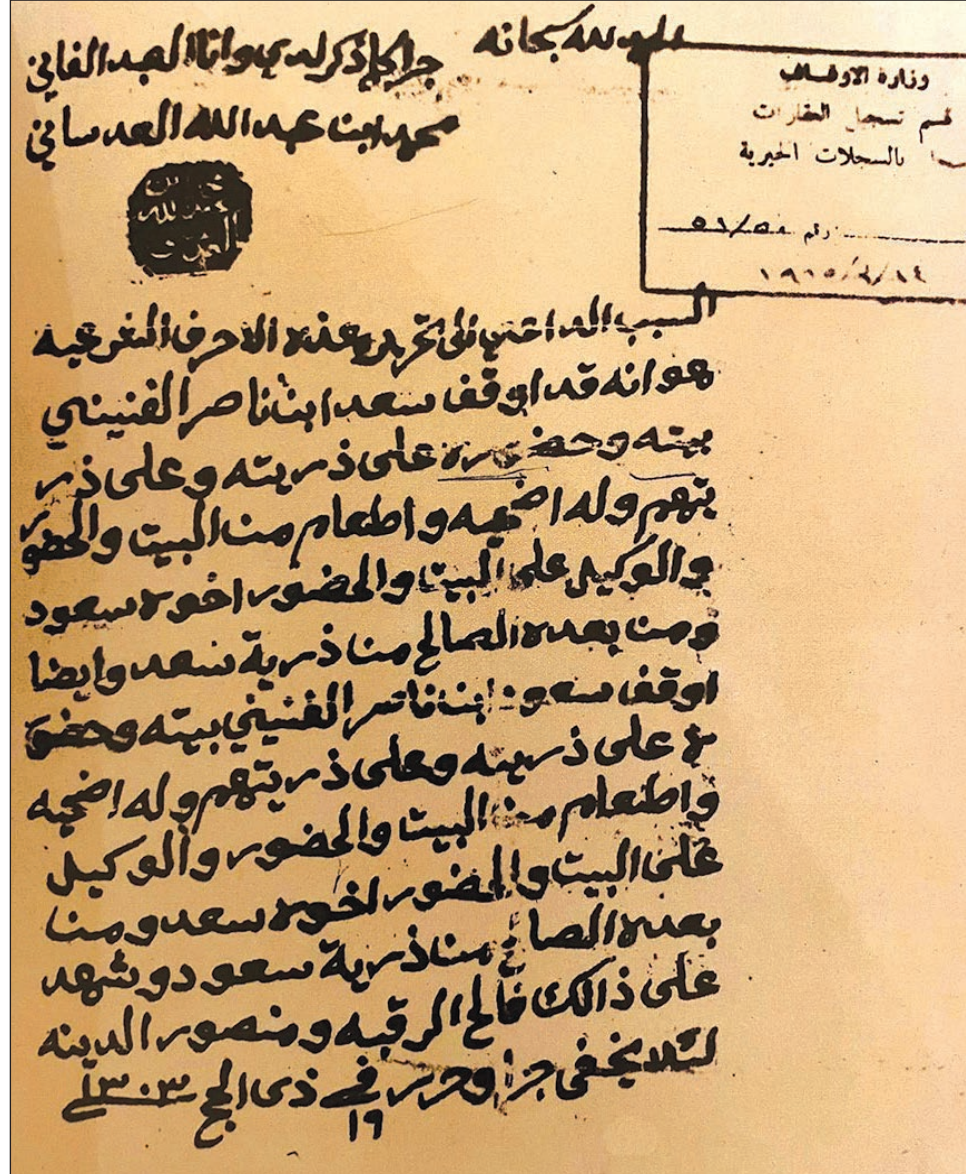 الحمد لله سبحانه
جرا كما ذكر لدي وانا العبد الفاني
محمد ابن عبد الله العدساني
وزارة الاوقاف
قسم تسجيل العقارات
بالسجلات الخيرية
رقم ٥١/٥٨
محمد بن عبد الله العدساني
السبب الداعي الى تحرير هذه الاحرف الشرعيه
هو انه قد اوقف سعد ابن ناصر الفنيني
بيته وحضوره على ذريته وعلى ذر
يتهم وله اضحيه واطعام من البيت والحضور
والوكيل على البيت والحضور اخوه سعود
ومن بعده الصالح من ذرية سعد وايضا
اوقف سعود ابن ناصر الفنيني بيته وحضو
ره على ذريته وعلى ذريتهم وله اضحيه
واطعام من البيت والحضور والوكيل
على البيت والحضور اخوه سعد ومن
بعده الصالح من ذرية سعود وشهد
على ذالك فالح الرقبه ومنصور الدينه
لئلا يخفى جرا وحرر في ١٩ ذى الحج ١٣٠٣